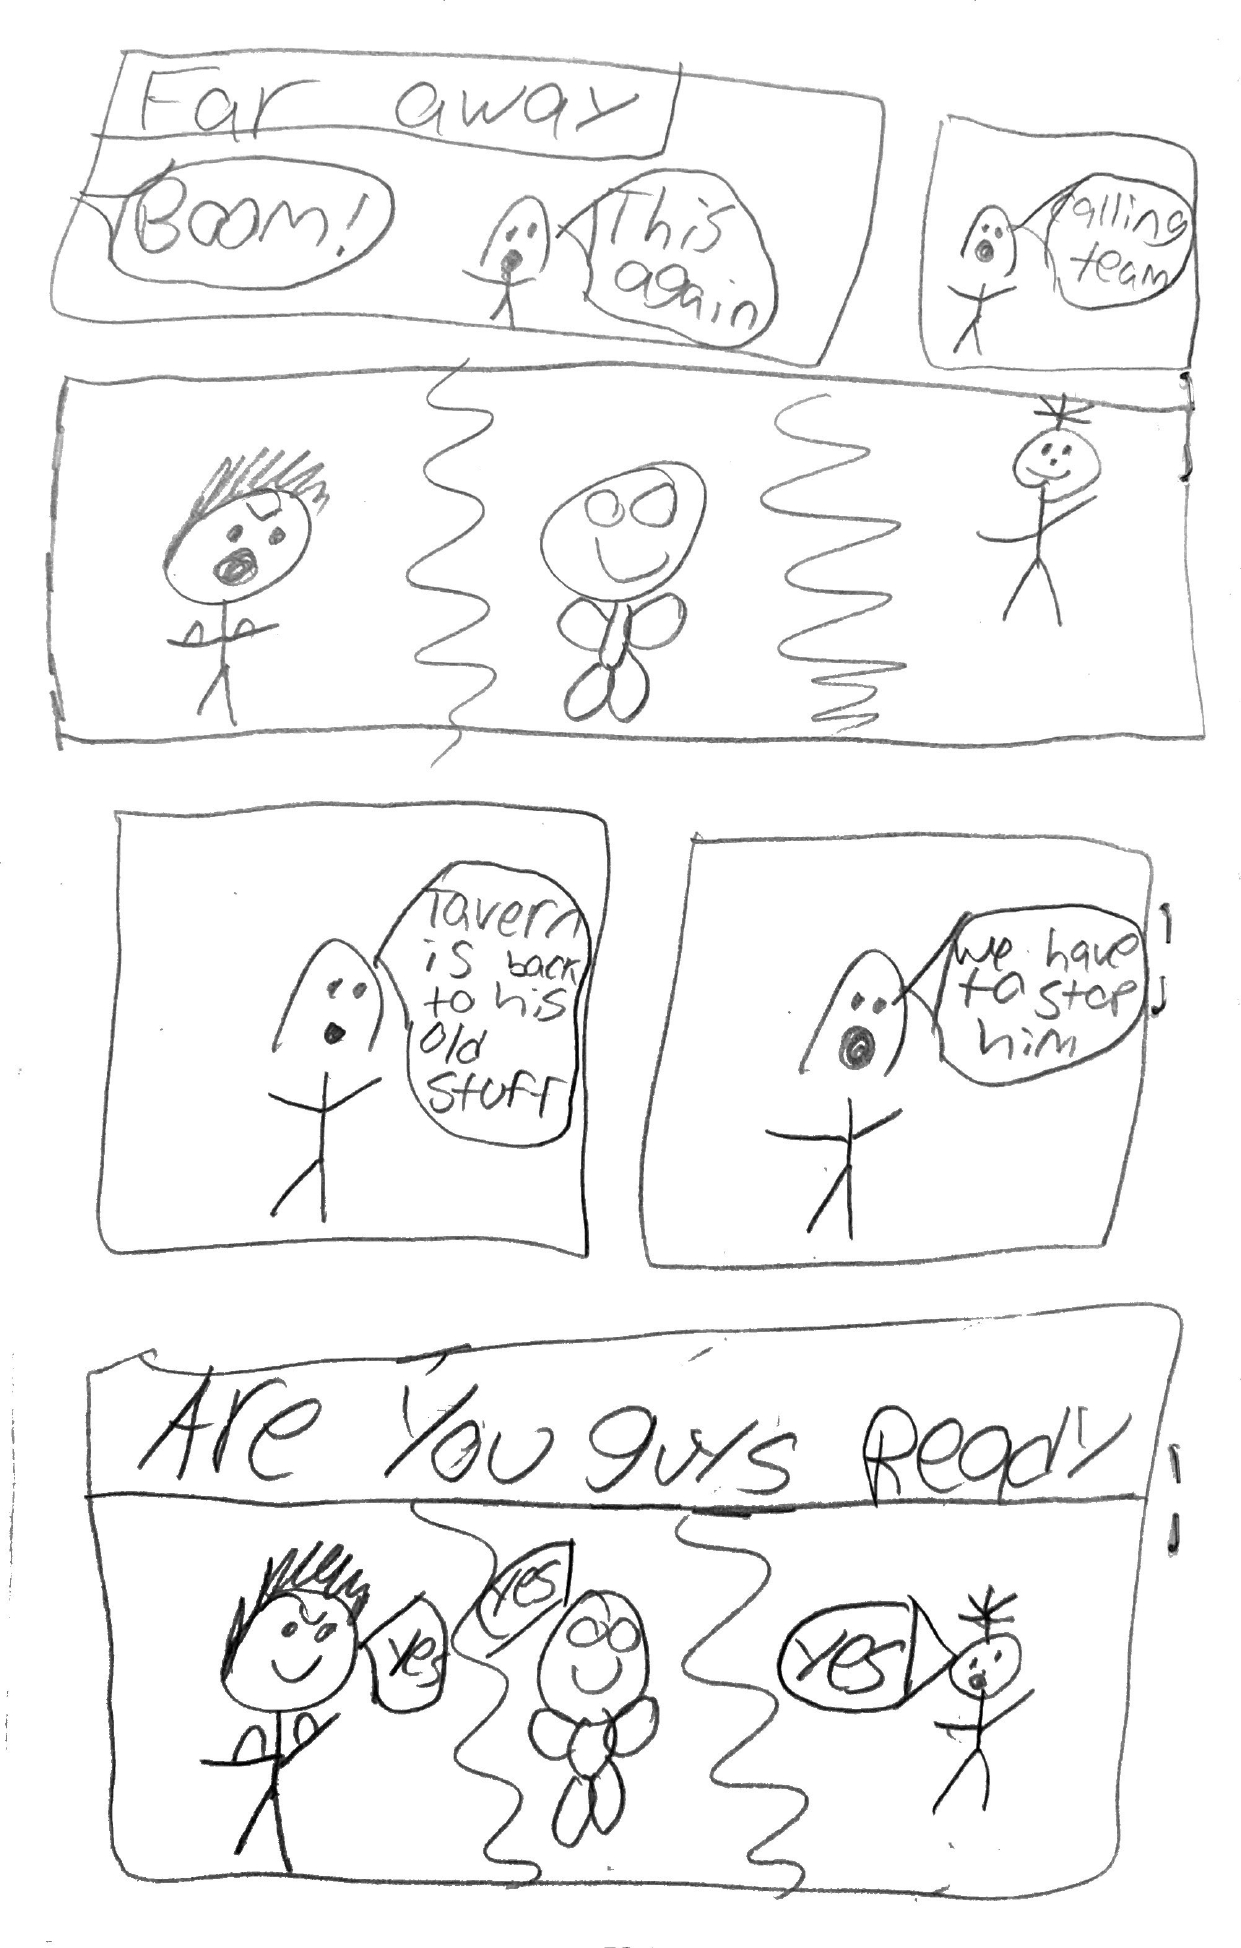 Far away
Boom!
This
again
calling
team
Tavern
is back
to his
old
stuff
we have
to stop
him
Are You guys Ready
yes
yes
yes